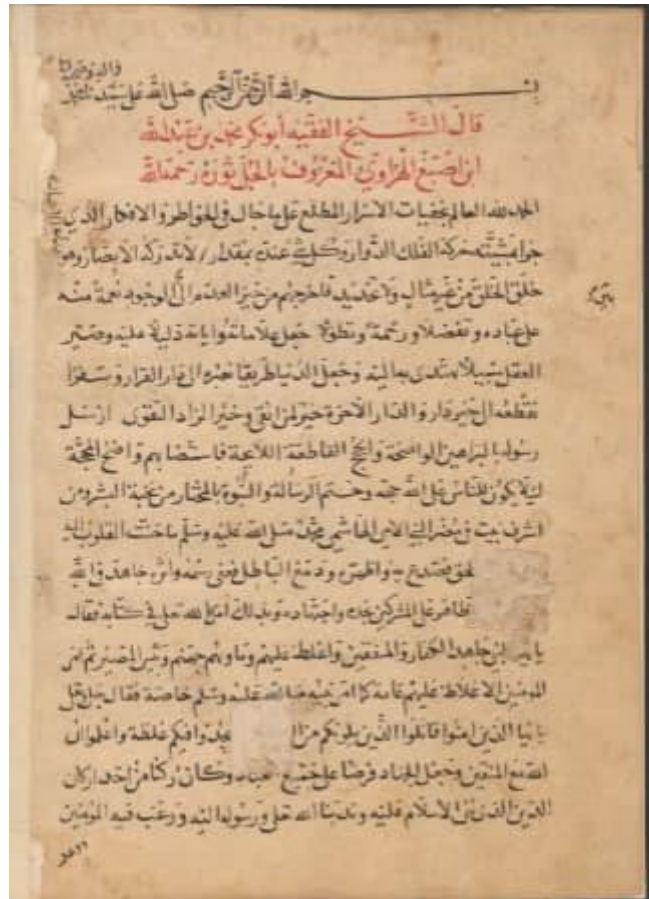 بسم الله الرحمن الرحيم صلى الله على سيدنا محمد
قال الشيخ الفقيه ابو بكر محمد بن عبد الله
ابن اصبغ الهراوي المعروف بالحيل رحمه الله
الحمد لله العالم بخفيات الاسرار المطلع على ما جال في الخواطر والافكار الذي
بمشيته حركة الفلك الدوار وكل شي عنده بمقدار لا تدركه الابصار وهو
خلق الخلق من غير مثال ولا فاخرجهم من حيز العدم الى الوجود نعمة منه
على عباده وتفضلا ورحمة وتطولا جعل علاماته واياته دليلا عليه وصير
العقل سبيلا يهتدى به اليه وجعل الدنيا طريقا الى دار القرار وسفرا
نقطعه الى خير دار والدار الاخرة خير لمن اتقى وخير الزاد التقوى ارسل
رسوله بالبراهين الواضحة والحجج القاطعة اللايحة واضح المحجة
ليلا يكون للناس على الله حجه وختم الرسالة والنبوة بالمختار من نخبة البشر ومن
اشرف بيت في مضر النبي الامين الهاشمي محمد صلى الله عليه وسلم ما حنت القلوب اليه
فصدع به واظهره ودمغ الباطل جاهد في الله
على المشركين واجتهاده وبذلك امره الله تعلى في كتابه فقال
يا ايها النبي جاهد الكفار والمنفقين واغلظ عليهم وماويهم جهنم وبيس المصير ثم امر
المومنين بالاغلاظ عليهم عامة كما امر نبيه صلى الله عليه وسلم خاصة فقال جل وعل
يا ايها الذين امنوا قاتلوا الذين يلونكم من وليجدوا فيكم غلظة واعلموا ان
الله مع المتقين وجعل الجهاد فرضا على جميع عباده وكان ركنا من احد اركان
الدين الذي بنى الاسلام عليه وندبنا الله تعلى ورسوله اليه ورغب فيه المومنين